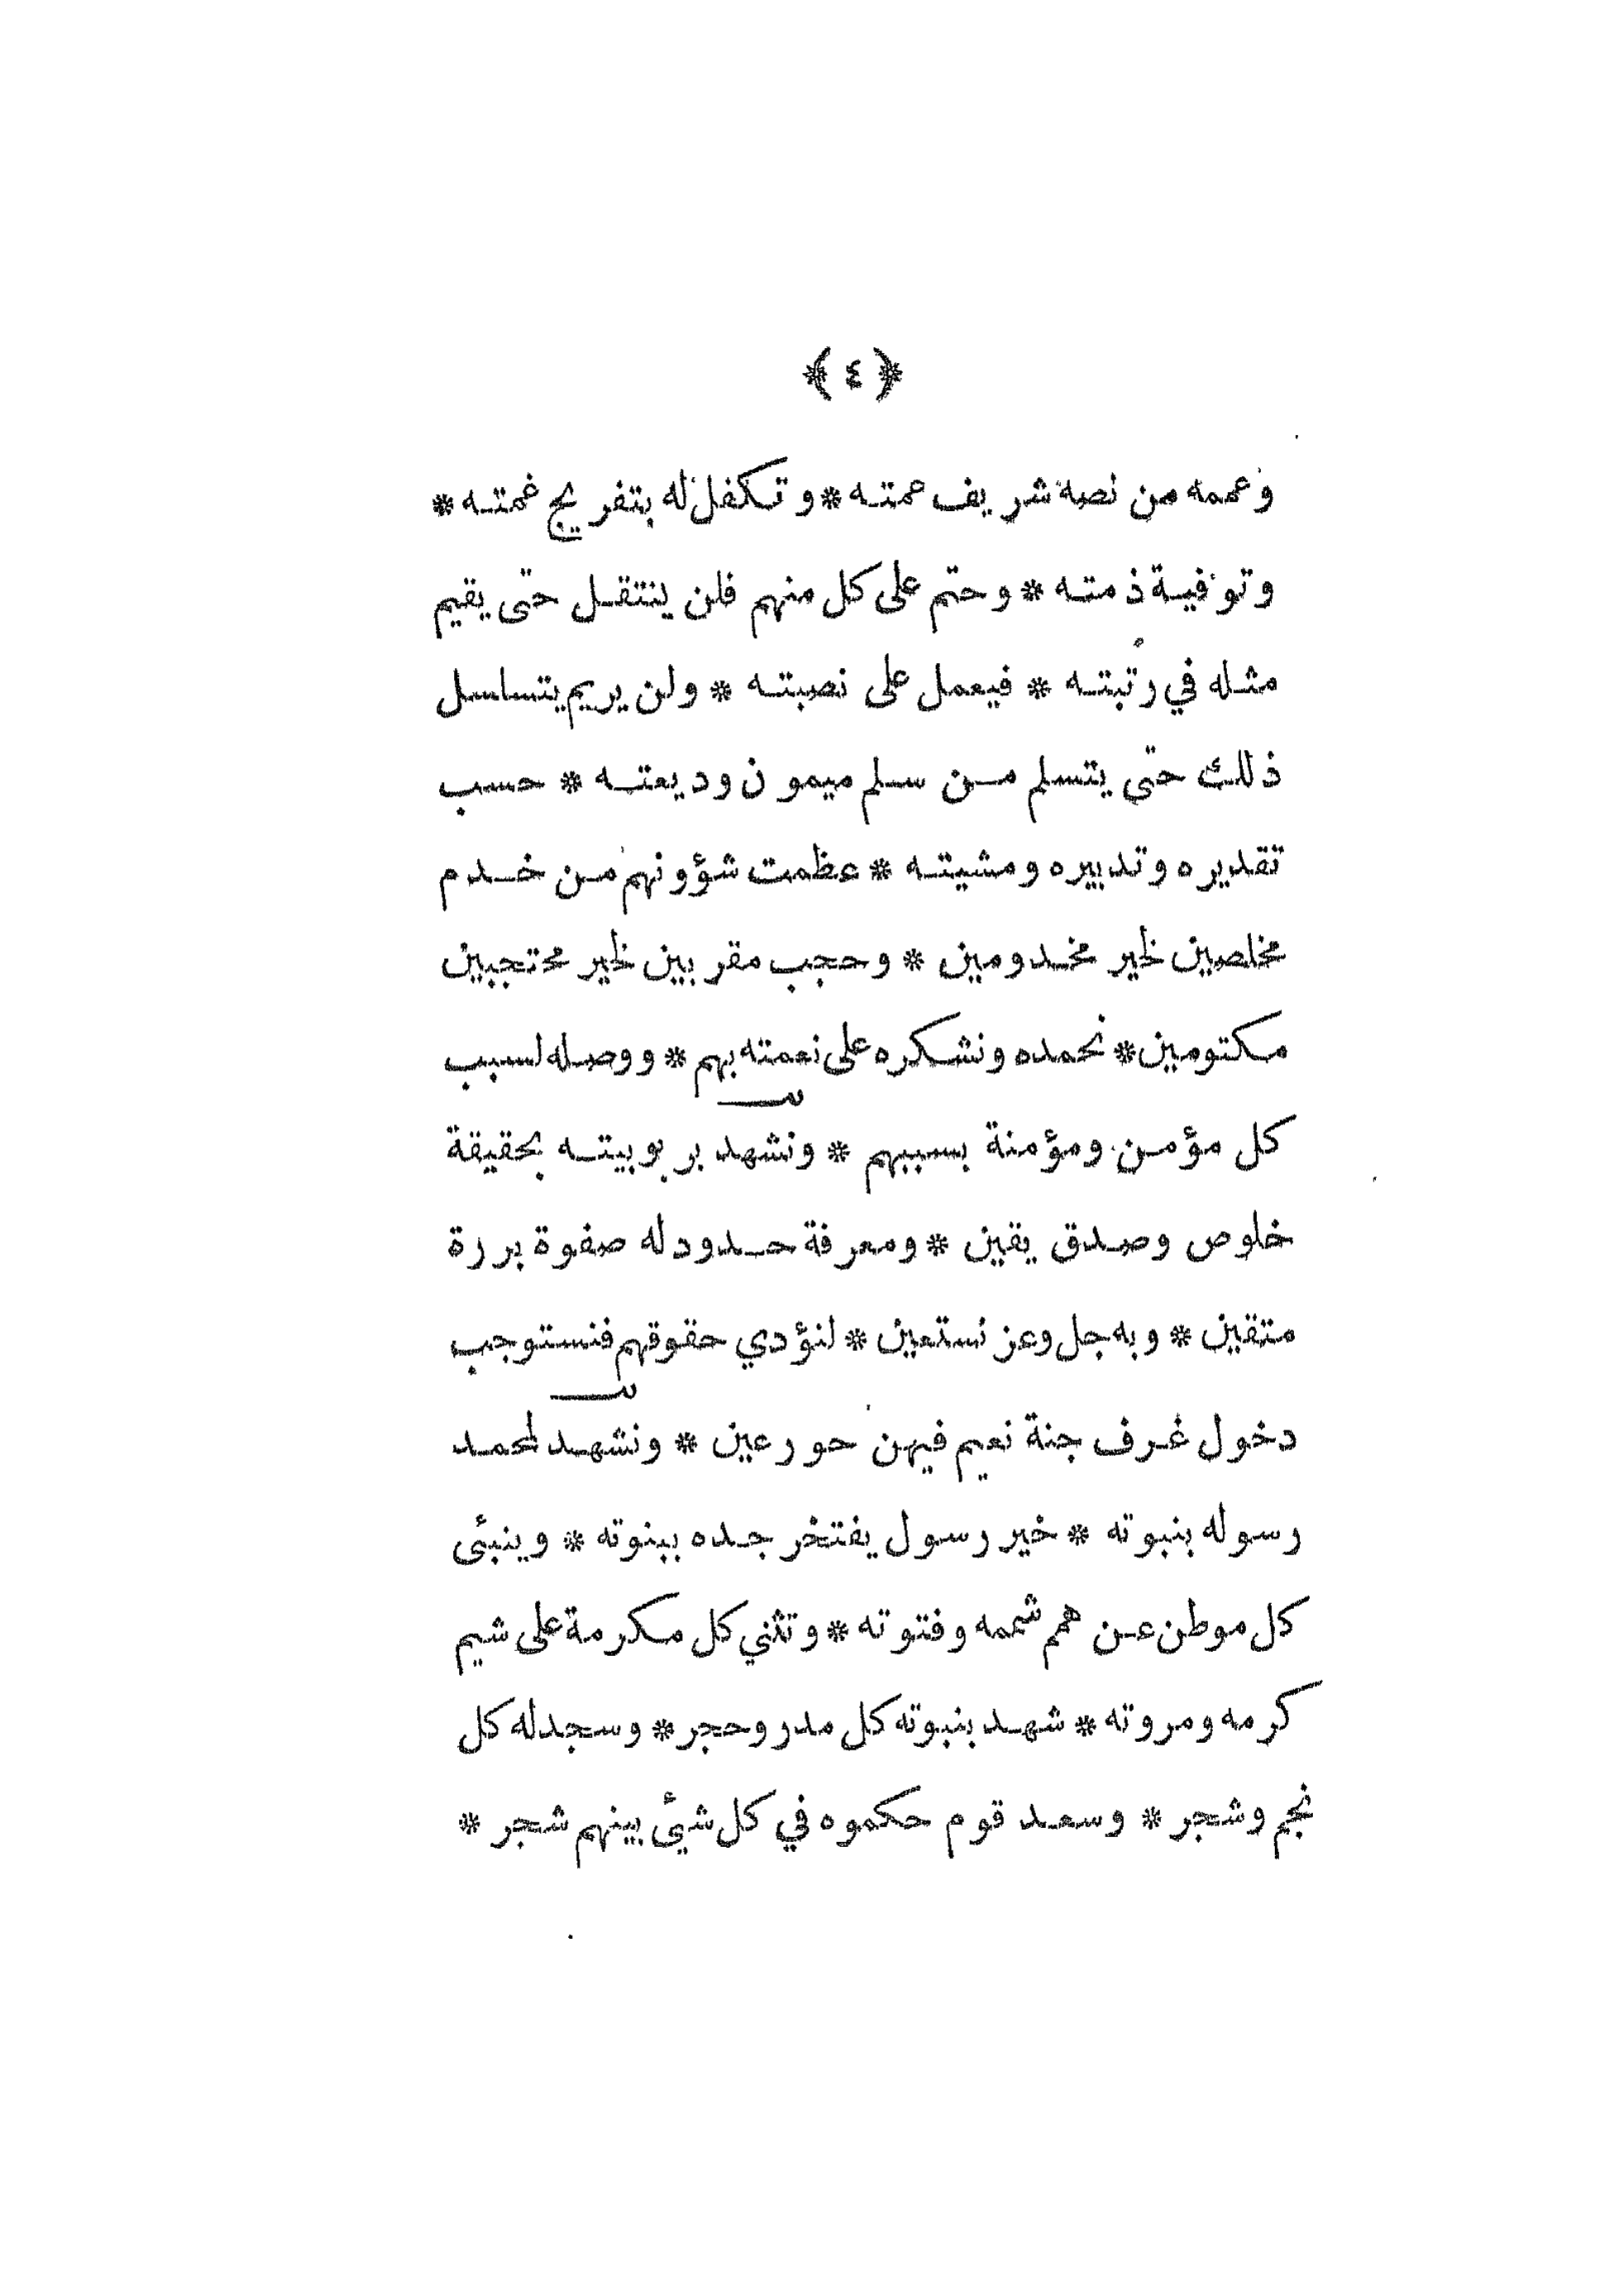 ﴿ ٤ ﴾
وعممه من نصه شريف عمته * وتكفل له بتفريج غمته *
وتوفية ذمته * وحتم على كل منهم فلن ينتقل حتى يقيم
مثله في رتبته * فيعمل على نصبته * ولن يريم يتساسل
ذلك حتى يتسلم من سلم ميمون وديعته * حسب
تقديره وتدبيره ومشيته * عظمت شؤونهم من خدم
مخلصين لخير مخدومين * وحجب مقربين لخير محتجبين
مكتومين * نحمده ونشكره على نعمته بهم * ووصله لسبب
كل مؤمن ومؤمنة بسببهم * ونشهد بربوبيته بحقيقة
خلوص وصدق يقين * ومعرفة حدود له صفوة بررة
متقين * وبه جل وعز نستعين * لنؤدي حقوقهم فنستوجب
دخول غرف جنة نعيم فيهن حور عين * ونشهد لمحمد
رسوله بنبوته * خير رسول يفتخر جده ببنوته * وينبئ
كل موطن عن همم شممه وفتوته * وتثني كل مكرمة على شيم
كرمه ومروته * شهد بنبوته كل مدر وحجر * وسجد له كل
نجم وشجر * وسعد قوم حكموه في كل شيئ بينهم شجر *